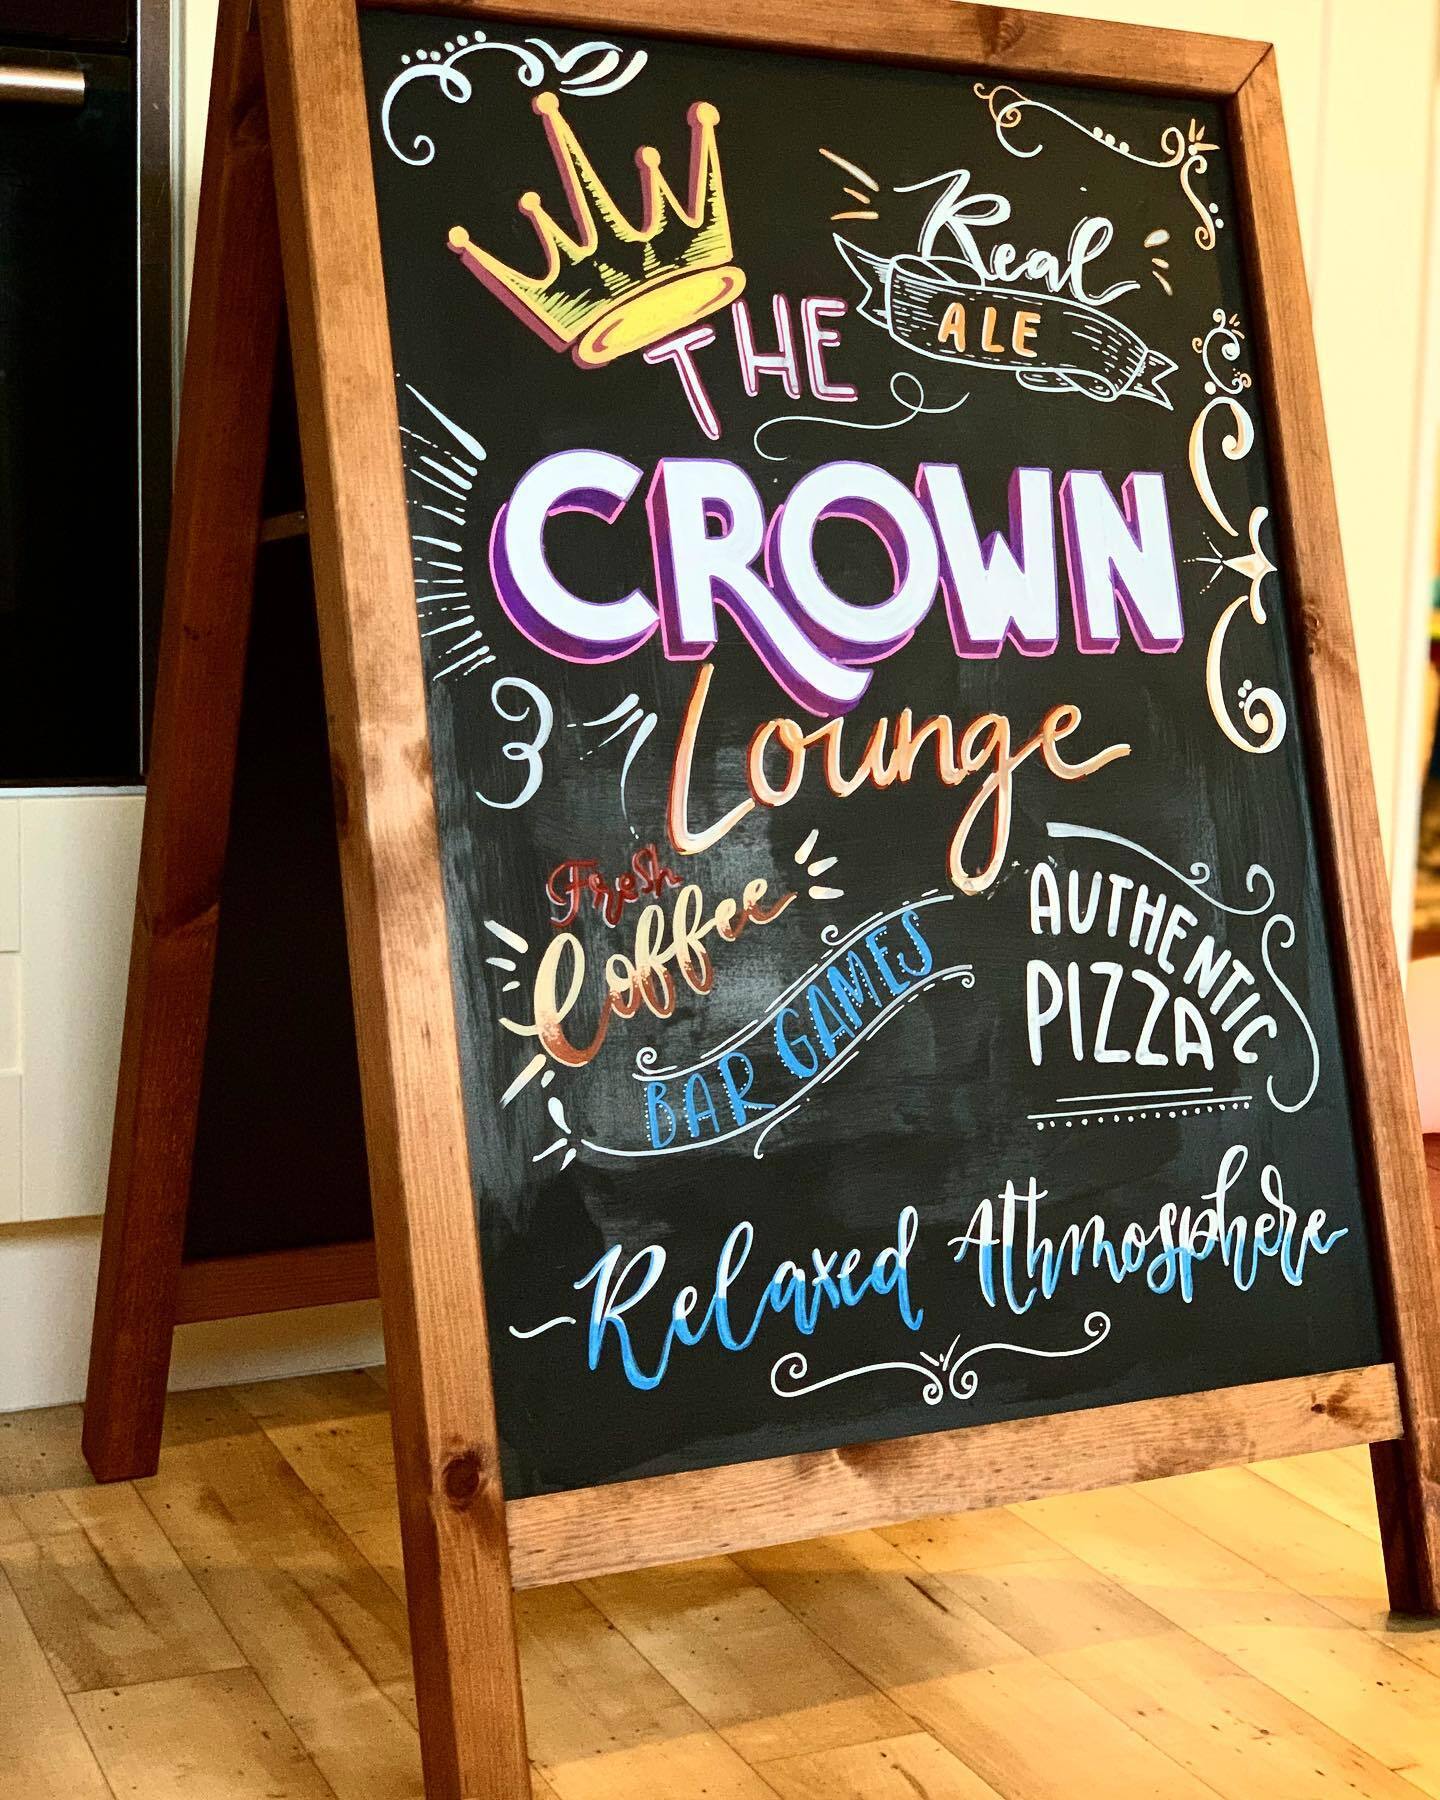 Real
ALE
THE
CROWN
Lounge
Fresh
Coffee
BAR GAMES
AUTHENTIC
PIZZA
Relaxed Athmosphere